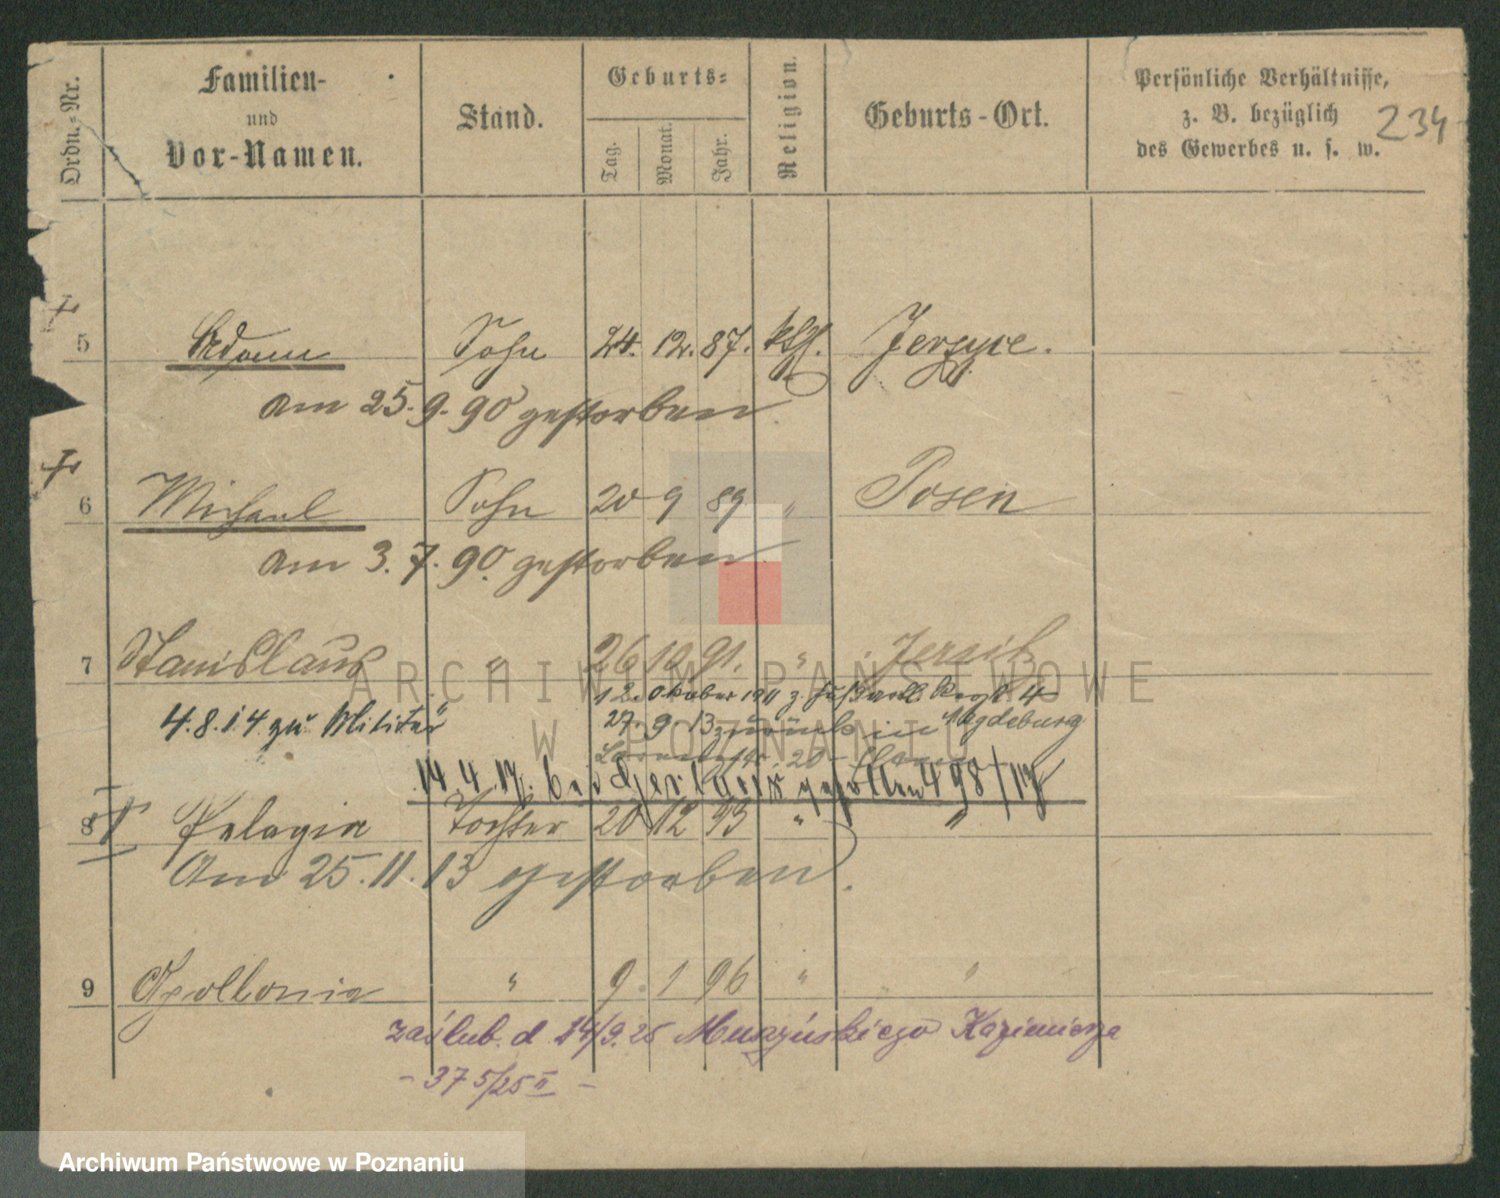 Ordn.-Nr.
Familien-
und
Vor-Namen.
Stand.
Geburts-
Tag.
Monat.
Jahr.
Religion.
Geburts-Ort.
Persönliche Verhältnisse,
z. B. bezüglich
des Gewerbes u. s. w.
234
5 Adam Sohn 24. 12. 87. kth.
am 25.9.90 gestorben
6 Michael Sohn 20 9 89 " Posen
am 3.7.90. gestorben
7 Stanislaus " 26 10 91. " Jersitz
12. Oktober 1911 z.
4.8.14 zu Militär
27. 9 13 zurück in Magdeburg
14.4.17. bei gefallen 498/17
8 Pelagia Tochter 20 12 93 " "
Am 25.11.13 gestorben.
9 Apollonia " 9. 1 96 " "
zaślub. d 14/9.25 Muszyńskiego Kazimierza
- 375/25 II -
ARCHIWUM PAŃSTWOWE
W POZNANIU
Archiwum Państwowe w Poznaniu